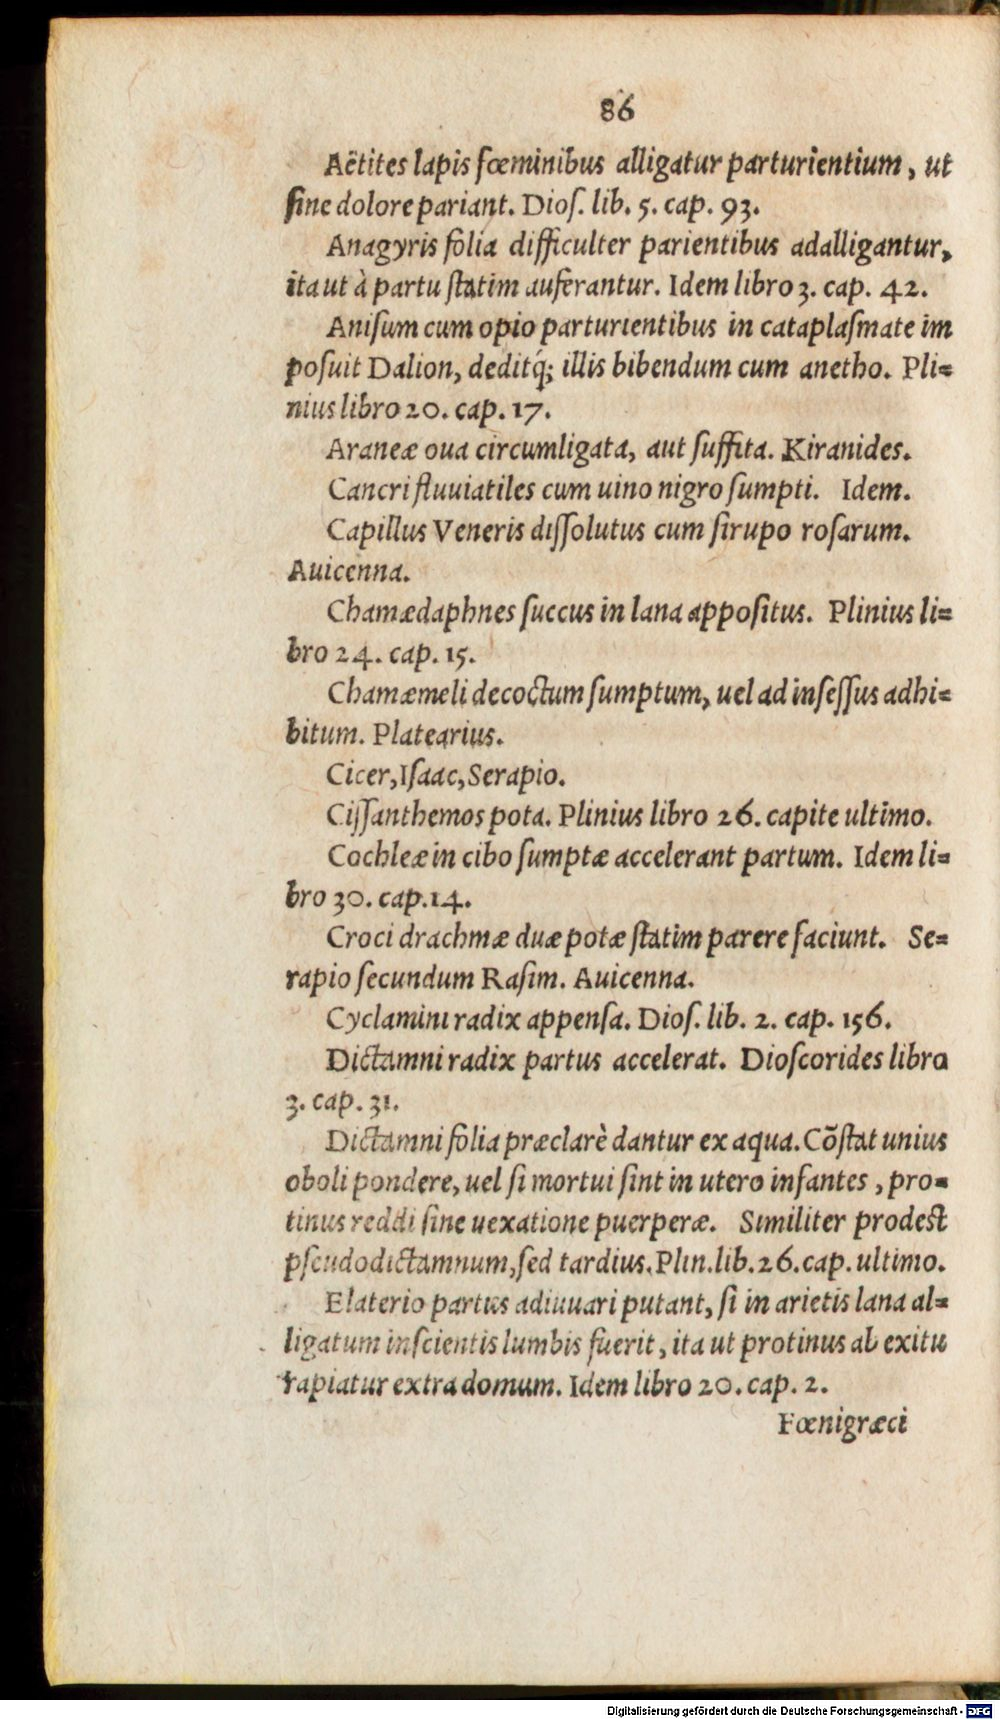 86
Aëtites lapis fœminibus alligatur parturientium, ut
ſine dolore pariant. Dioſ. lib. 5. cap. 93.
Anagyris folia difficulter parientibus adalligantur,
ita ut à partu ſtatim auferantur. Idem libro 3. cap. 42.
Aniſum cum opio parturientibus in cataplaſmate im
poſuit Dalion, dedit q́; illis bibendum cum anetho. Pli=
nius libro 20. cap. 17.
Araneæ oua circumligata, aut ſuffita. Kiranides.
Cancri fluuiatiles cum uino nigro ſumpti. Idem.
Capillus Veneris diſſolutus cum ſirupo roſarum.
Auicenna.
Chamædaphnes ſuccus in lana appoſitus. Plinius li=
bro 24. cap. 15.
Chamæmeli decoctum ſumptum, uel ad inſeſſus adhi=
bitum. Platearius.
Cicer, Iſaac, Serapio.
Ciſſanthemos pota. Plinius libro 26. capite ultimo.
Cochleæ in cibo ſumptæ accelerant partum. Idem li=
bro 30. cap. 14.
Croci drachmæ duæ potæ ſtatim parere faciunt. Se=
rapio ſecundum Raſim. Auicenna.
Cyclamini radix appenſa. Dioſ. lib. 2. cap. 156.
Dictamni radix partus accelerat. Dioſcorides libro
3. cap. 31.
Dictamni folia præclarè dantur ex aqua. Cõſtat unius
oboli pondere, uel ſi mortui ſint in utero infantes, pro=
tinus reddi ſine uexatione puerperæ. Similiter prodeſt
pſeudodictamnum, ſed tardius. Plin. lib. 26. cap. ultimo.
Elaterio partus adiuuari putant, ſi in arietis lana al=
ligatum inſcientis lumbis fuerit, ita ut protinus ab exitu
rapiatur extra domum. Idem libro 20. cap. 2.
Fœnigræci
Digitalisierung gefördert durch die Deutsche Forschungsgemeinschaft - DFG